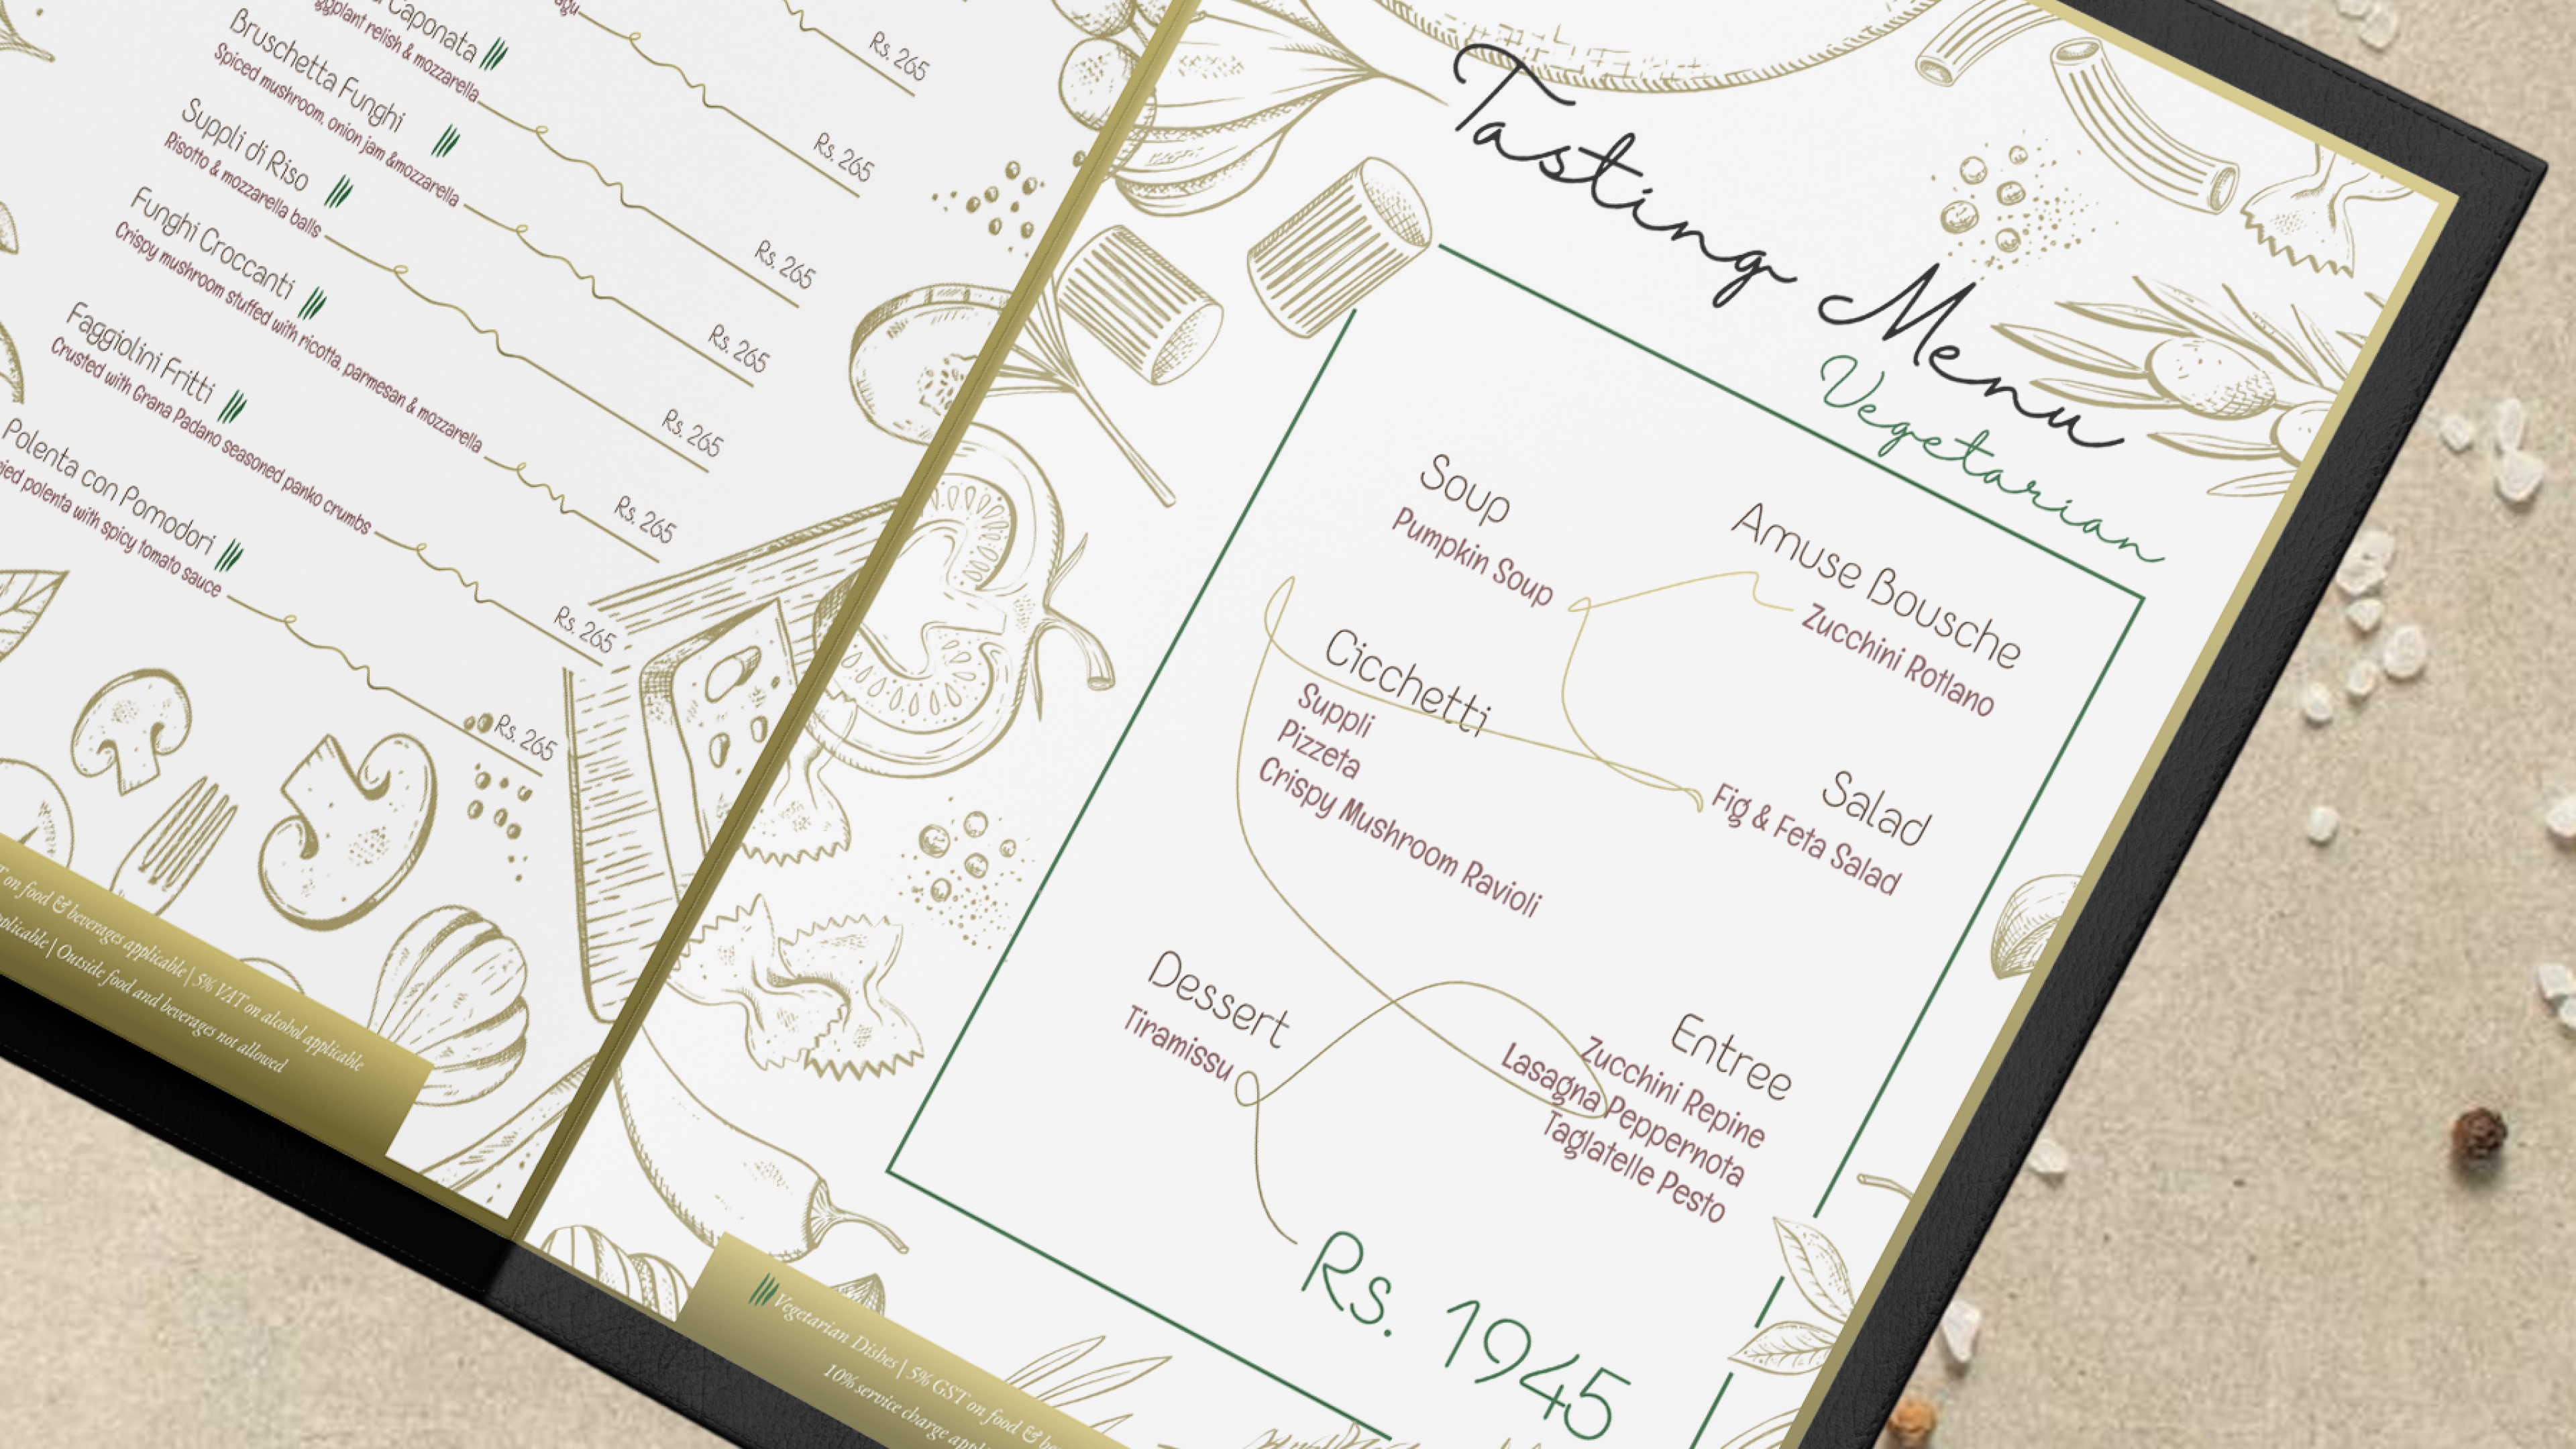 Caponata
eggplant relish & mozzarella
Rs. 265
Bruschetta Funghi
Spiced mushroom, onion jam &mozzarella
Rs. 265
Suppli di Riso
Risotto & mozzarella balls
Rs. 265
Funghi Croccanti
Crispy mushroom stuffed with ricotta, parmesan & mozzarella
Rs. 265
Faggiolini Fritti
Crusted with Grana Padano seasoned panko crumbs
Rs. 265
Polenta con Pomodori
polenta with spicy tomato sauce
Rs. 265
Rs. 265
Rs. 265
on food & beverages applicable | 5% VAT on alcohol applicable
| Outside food and beverages not allowed
Tasting Menu
Vegetarian
Amuse Bousche
Zucchini Rotlano
Soup
Pumpkin Soup
Salad
Fig & Feta Salad
Cicchetti
Suppli
Pizzeta
Crispy Mushroom Ravioli
Entree
Zucchini Repine
Lasagna Peppernota
Taglatelle Pesto
Dessert
Tiramissu
Rs. 1945
Vegetarian Dishes | 5% GST on food &
10% service charge